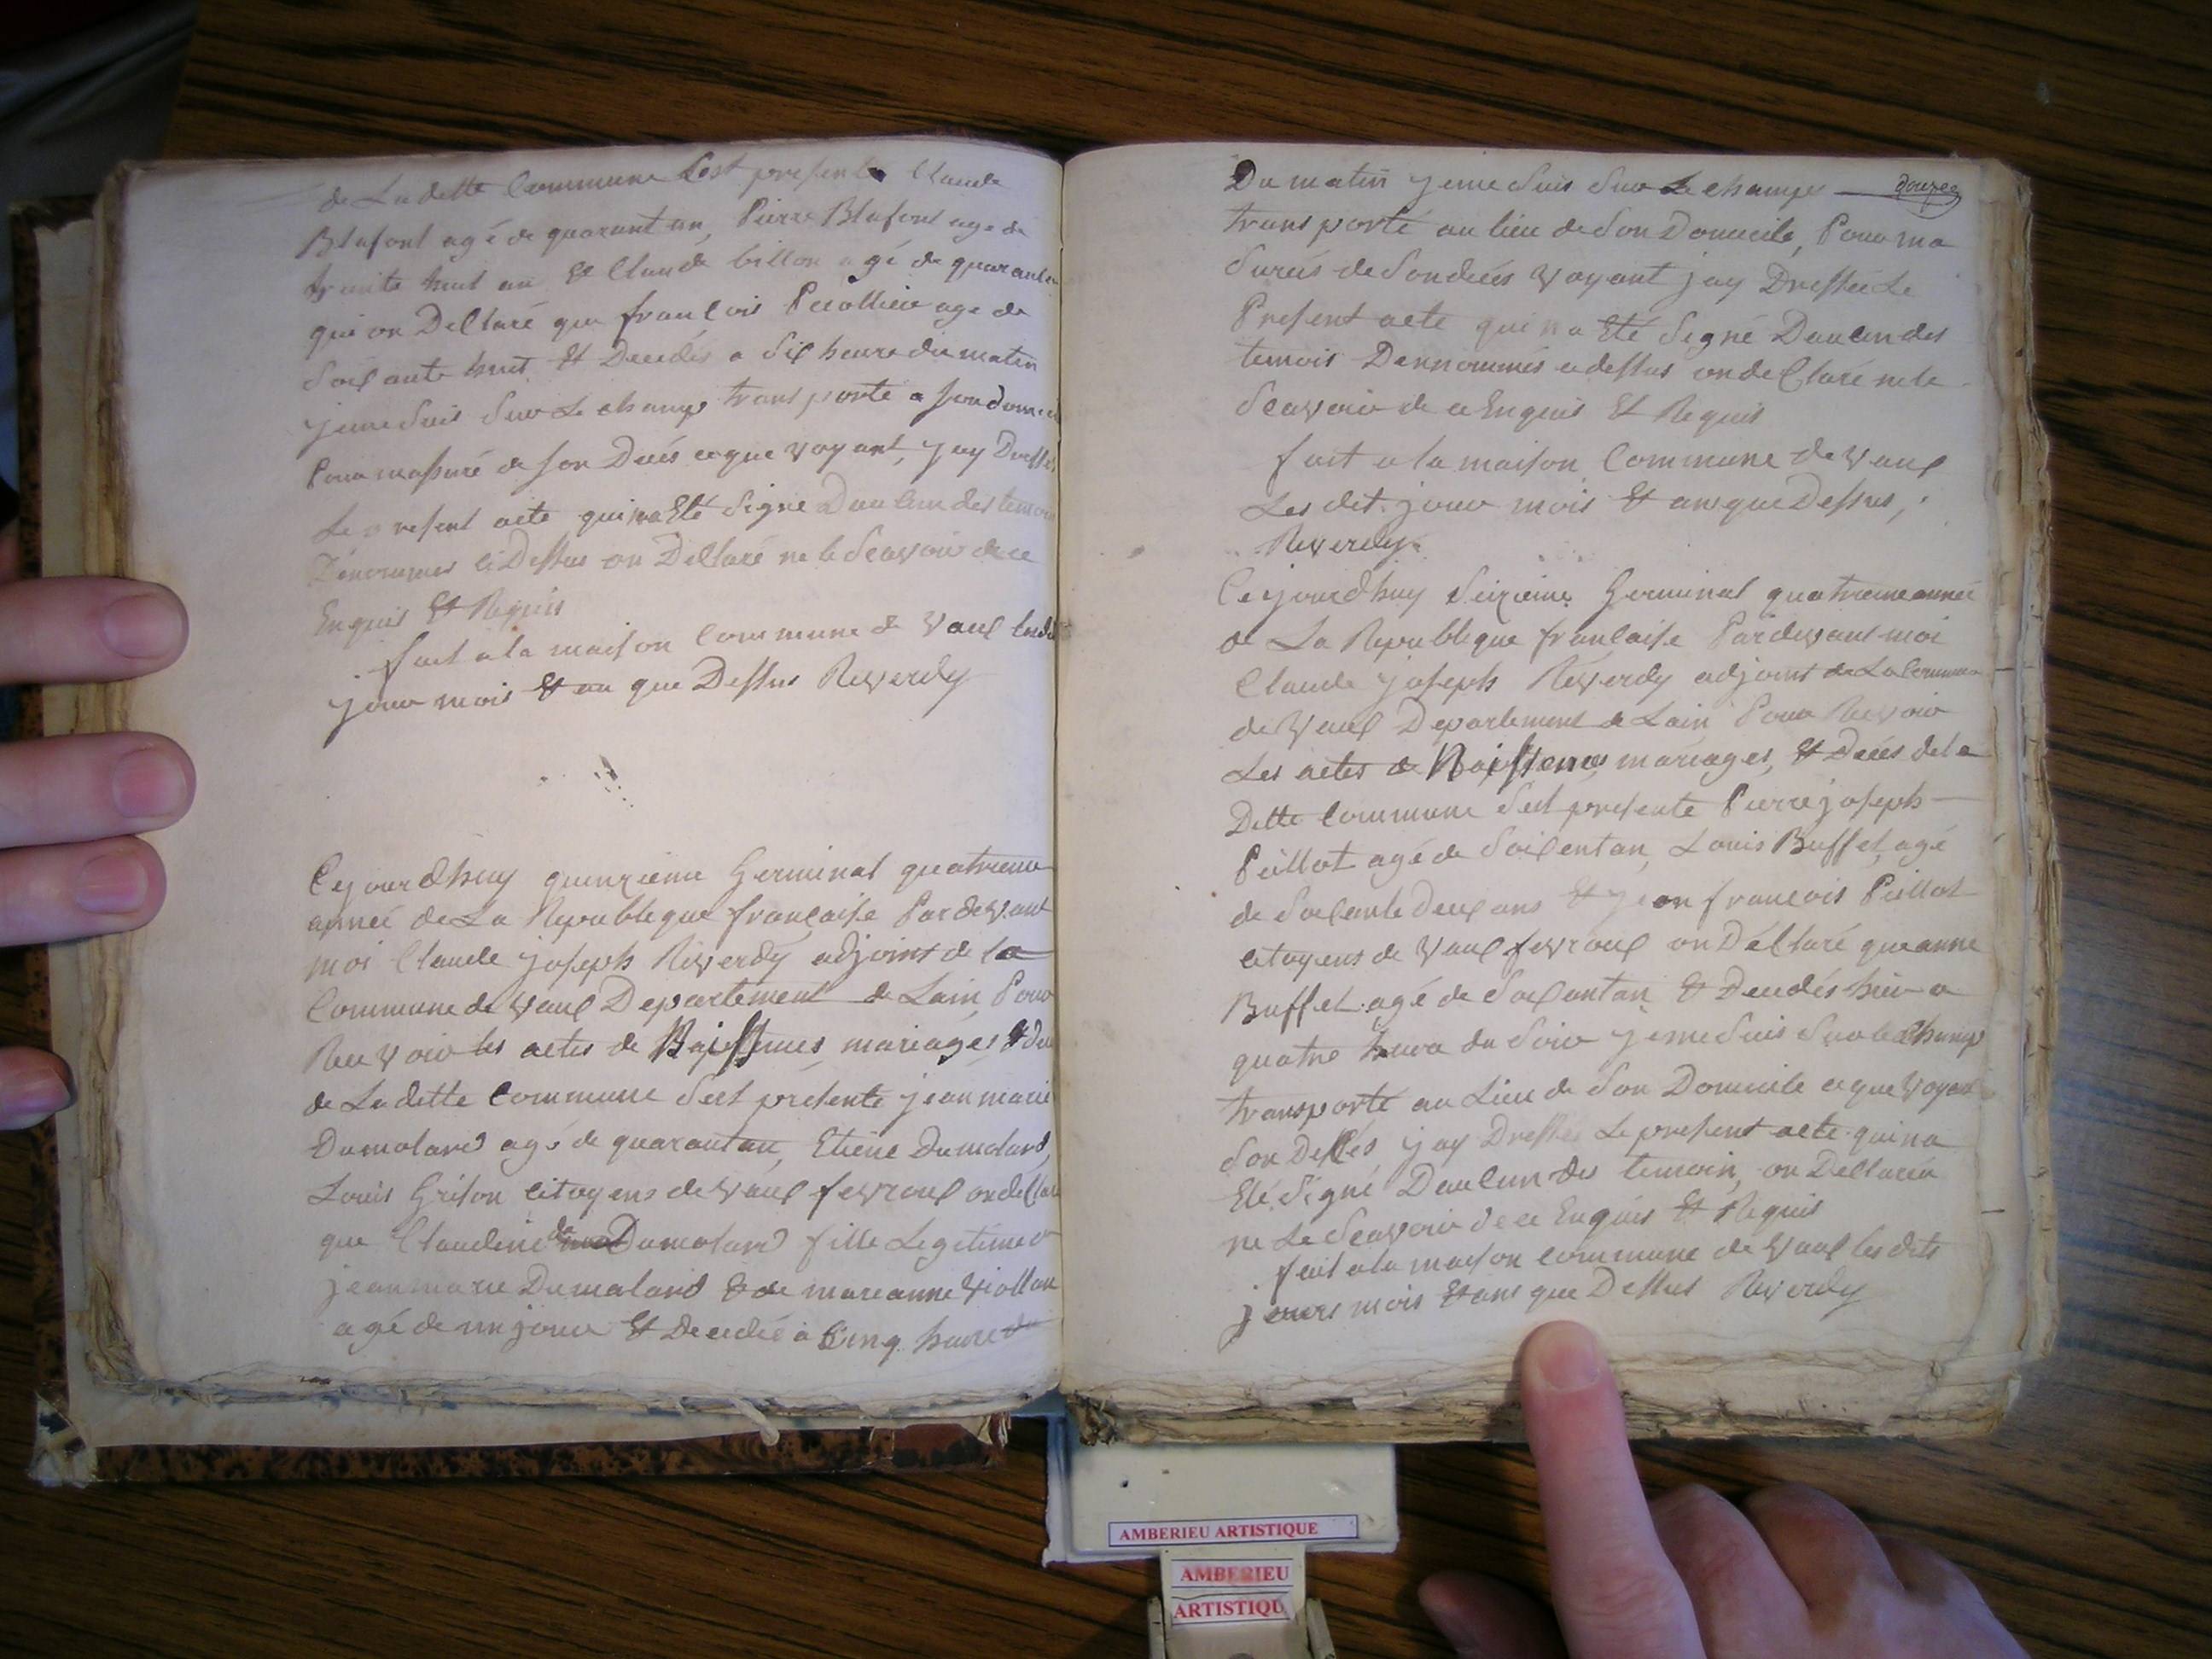 de Ladette Commune Sest presenté Claude
Blafont agé de quarant an, Pierre Blafont age de
trente huit an Et Claude billon agé de quarante
qui on Dellaré que franCois Perollier age de
Soixante huit Et Decedés a Six heure du matin
jeme Suis Sur Le champs transporté a Son
Pour massuré de Son Deces ceque voyant, jay
Le present acte qui na Eté Signé Daulun des
Dénommes ci Dessus on Dellaré ne le Scavoir de ce
Enquis Et Requis
fait ala maison Commune de Vaux
jour mois Et an que Dessus Reverdy
Cejourdhuy quinzieme Germinal quatrieme
année de La Republique francaise Pardevant
moi Claude joseph Reverdy adjoint de la
Commune de Vaux Departement de Lain Pour
Recevoir les actes de Naissences mariages
de Ladette Commune Sest presenté jean marie
Dumolard agé de quarantan, Etiene Dumolard,
Louis Grison citoyens de Vaux fevroux
que Claudine Dumolard fille Legitime
jean marie Dumolard & de marianne
agé de un jour Et Decedée à Cinq heure du
Du matin jeme Suis Sur Le champs douzee
transporté au lieu de Son Domicile, Pour ma
Surés de Son decés Voyant jay Dressée Le
Present acte qui na Eté Signé Daulun des
temois Dennommés ci dessus on declaré ne le
Scavoir de ce Enquis Et Requis
fait a la maison Commune de Vaux
Les dit jour mois Et an que Dessus,
Reverdy
Cejourdhuy Seizieme Germinal quatrieme année
de La Republique francaise Pardevant moi
Claude joseph Reverdy adjoint de La Commune
de Vaux Departement de Lain Pour Recevoir
Les actes de Naissences mariages, Et Deces dela
Dette Commune Sest presenté Pierre joseph
Peillot agé de Soixentan, Louis Buffet, agé
de Soixante Deux ans Et jean francois Peillot
citoyens de Vaux fevroux on Déllaré que anne
Buffet agé de Soixantan Et Decedés hier a
quatre heure du Soir jeme Suis Sur le Champ
transporté au Lieu de Son Domicile ceque Voyant
Son jay Dressé Le present acte qui na
Eté Signé Daulun des temoin, on Dellarée
ne Le Scavoir de ce Enquis Et Requis
fait ala maison commune de Vaux les dits
jours mois Et ans que Dessus Reverdy
AMBERIEU ARTISTIQUE
AMBERIEU
ARTISTIQU